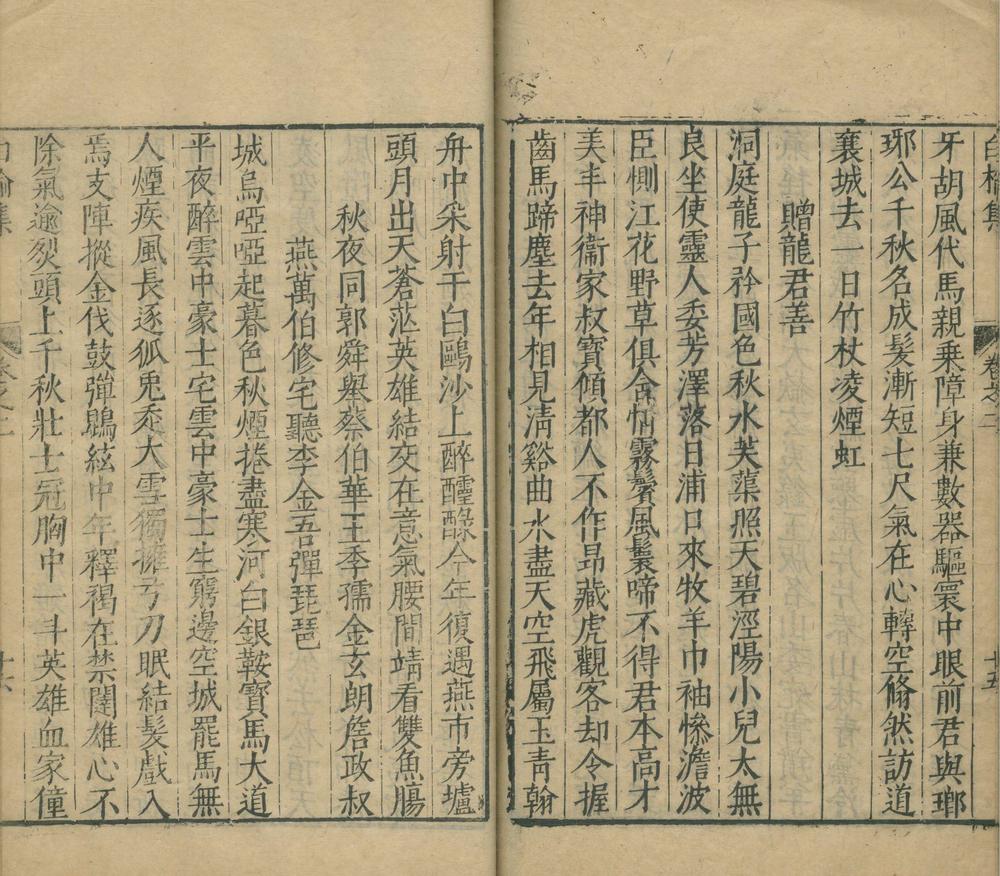 白榆集
卷之二
十五
牙胡風代馬親乗障身兼數器驅寰中眼前君與瑯
琊公千秋名成髪漸短七尺氣在心轉空翛然訪道
襄城去一日竹杖凌煙虹
贈龍君善
洞庭龍子矜國色秋水芙蕖照天碧涇陽小兒太無
良坐使靈人委芳澤落日浦口來牧羊巾袖慘澹波
臣惻江花野草俱含情霧鬢風鬟啼不得君本高才
美丰神衞家叔寶傾都人不作昻藏虎觀客却令握
齒馬蹄塵去年相見淸谿曲水盡天空飛屬玉靑翰
舟中朵射干白鷗沙上醉醽醁今年復遇燕市旁壚
頭月出天蒼茫英雄結交在意氣腰間靖看雙魚腸
秋夜同郭舜舉蔡伯華王季孺金玄朗詹政叔
燕萬伯修宅聽李金吾彈琵琶
城烏啞啞起暮色秋煙捲盡寒河白銀鞍寶馬大道
平夜醉雲中豪士宅雲中豪士生窮邊空城罷馬無
人煙疾風長逐狐兎禿大雪獨擁弓刀眠結髮戲入
焉支陣摐金伐鼓彈鵾絃中年釋褐在禁闥雄心不
除氣逾烈頭上千秋壯士冠胸中一斗英雄血家僮
白榆集
卷之二
十六